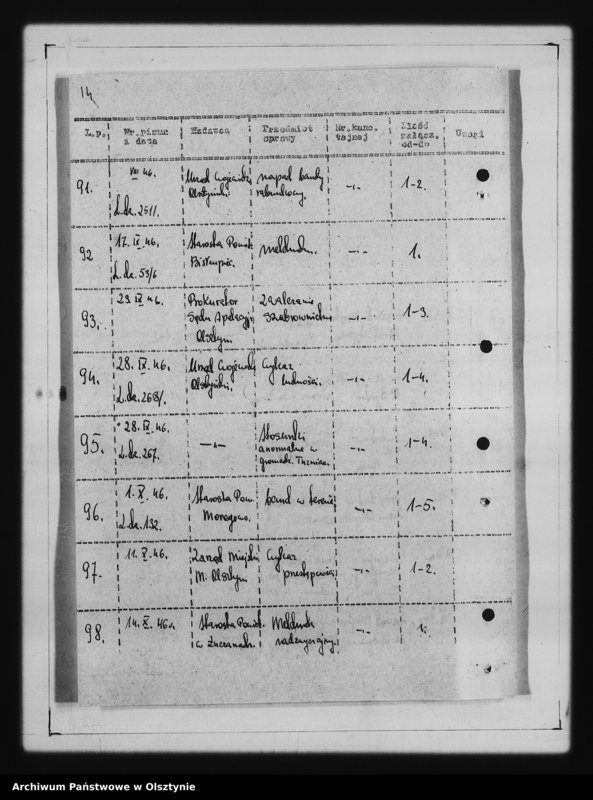 14
L.p. Nr.pisma i data Nadawca Przedmiot sprawy Nr.kanc. tajnej Ilość załącz. od-do Uwagi
91. 46. L.dz. 251/. Urząd Wojewódz. Olsztyński. napad bandy rabunkowej. -„- 1-2.
92 17. IX. 46. L.dz. 53/6 Starosta Powiat. Biskupiec. meldunk. -„- 1.
93. 23. IX 46. Prokurator Sądu Apelacyj. Olsztyn Zwalczanie Szabrownictw -„- 1-3.
94. 28. IX. 46. L.dz. 268/. Urząd Wojewódz. Olsztyński. Wykaz ludności. -„- 1-4.
95. 28. IX. 46. L.dz. 267. -„- Stosunki anormalne w gromadz. -„- 1-4.
96. 1. X. 46. L.dz. 132. Starosta Pow. Morągowo. band w terenie -„- 1-5.
97. 11. X. 46. Zarząd Miejski M. Olsztyn Wykaz przestępczości -„- 1-2.
98. 14. X. 46 r. Starosta Powiat. w Meldunek -„- 1.
Archiwum Państwowe w Olsztynie